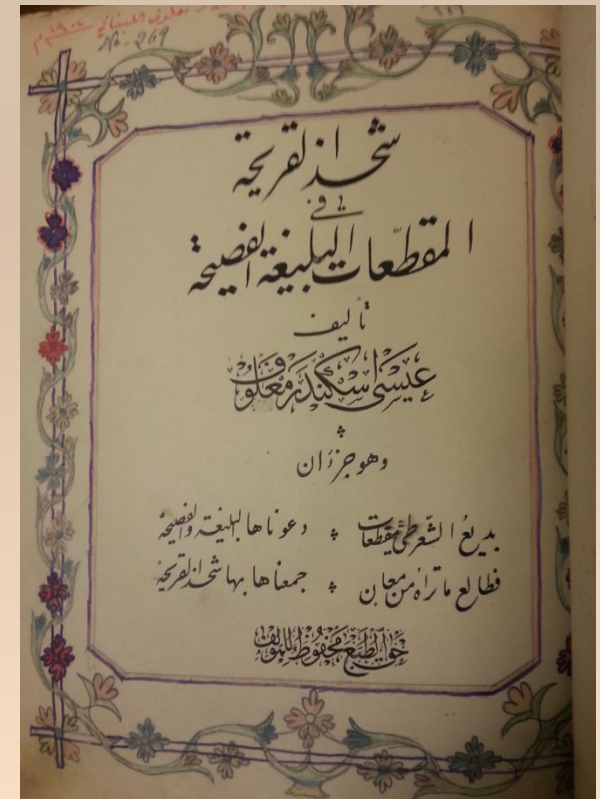 معلوف اللبناني ١٩٠٢م
No - 269
شحذ القريحة
في
المقطّعات البليغة الفصيحة
تأليف
عيسى اسكندر معلوف
وهو جزءان
بديع الشعر طيّ مقطعات ؞ دعوناها البليغة والفصيحة
فطالع ما تراه من معان ؞ جمعناها بها شحذ القريحة
حق الطبع محفوظ للمؤلف